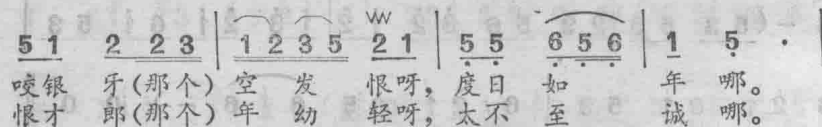 5 1 2 2 3 | 1 2 3 5 2 1 | 5 5 6 5 6 | 1 5 ·
咬银 牙(那个) 空 发 恨呀, 度日 如 年 哪。
恨才 郎(那个) 年 幼 轻呀, 太不 至 诚 哪。